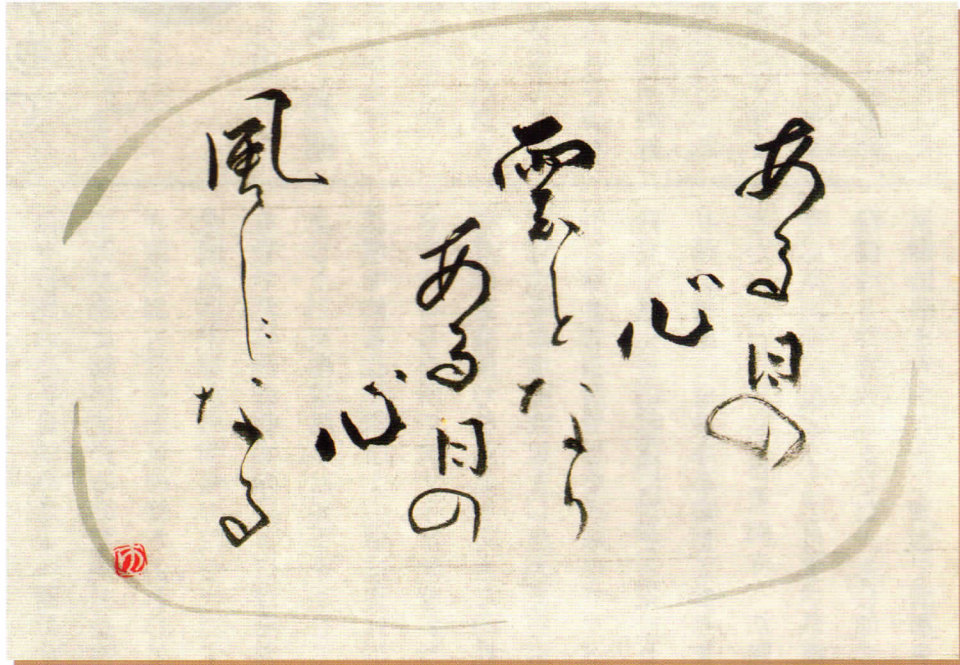 ある日の
心
雲となり
ある日の
心
風になる
ゆ